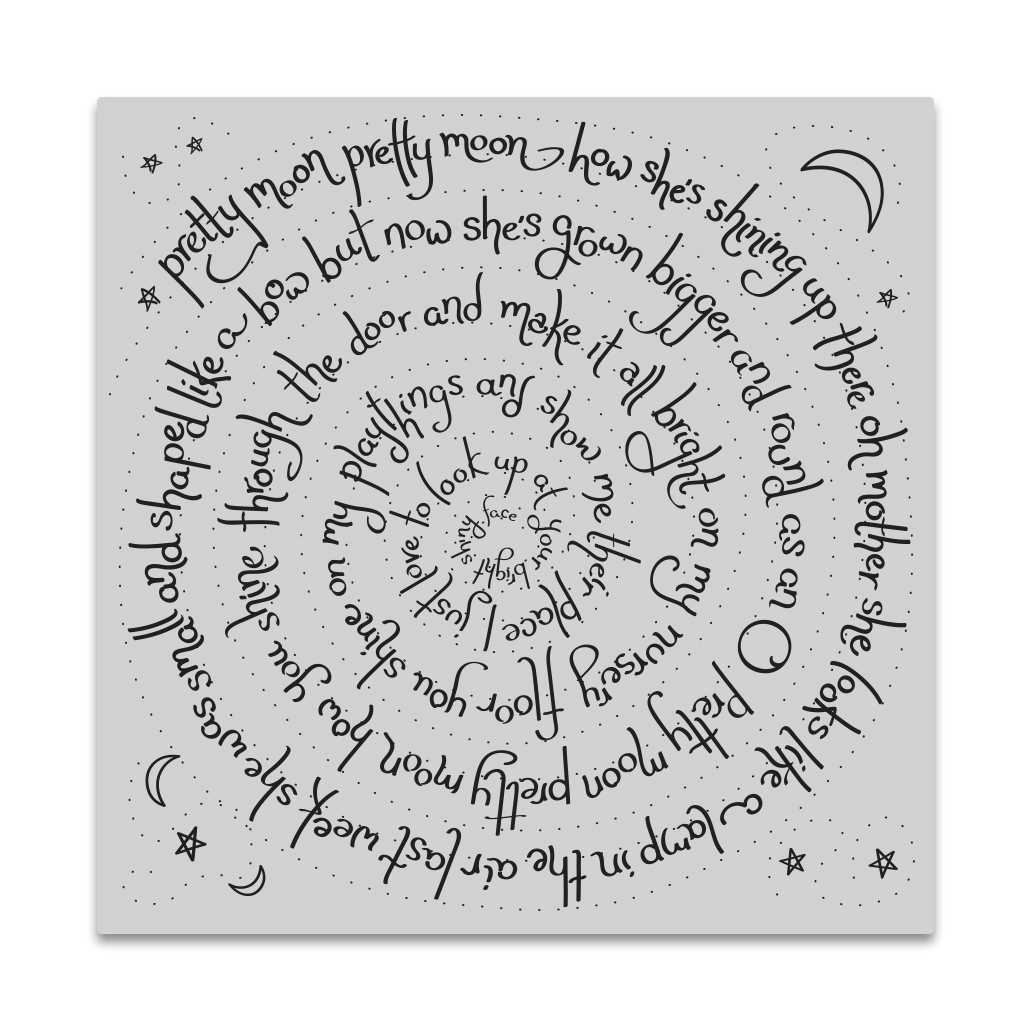 pretty moon pretty moon how she's shining up there oh mother she looks like a lamp in the air last week she was small and shaped like a bow
but now she's grown bigger and round as an O pretty moon pretty moon how you shine through the door
and make it all bright on my nursery floor you shine on my playthings
and show me their place I just love to look up at your bright shiny face